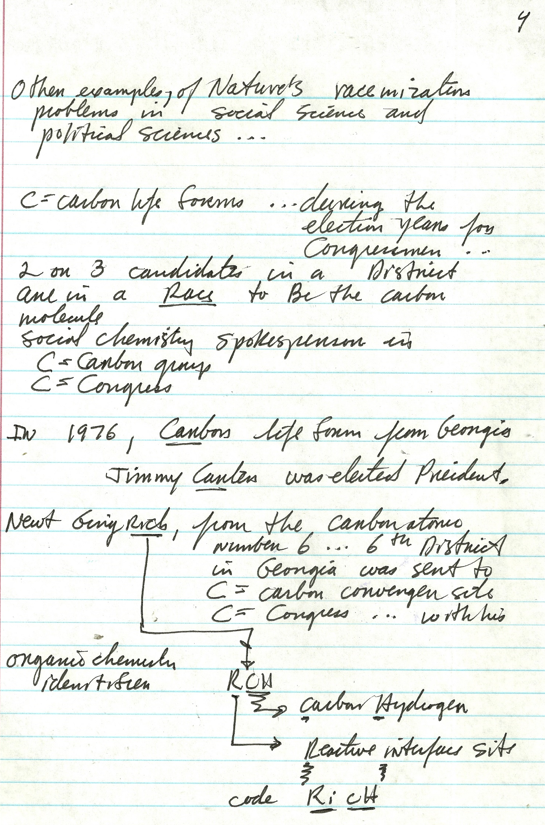 4
Other examples, of Nature's racemization
problems in social science and
political sciences ...
C = carbon life forms ... during the
election years for
Congressmen ...
2 or 3 candidates in a District
are in a Race to Be the carbon
molecule
social chemistry spokesperson in
C = Carbon group
C = Congress
IN 1976, Carbon life form from Georgia
Jimmy Carter was elected President.
Newt GingRich, from the carbon atomic
number 6 ... 6th District
in Georgia was sent to
C = carbon convergen site
C = Congress ... with his
organic chemistry
identifier
RCH
Carbon Hydrogen
Reactive interface site
code Ri CH